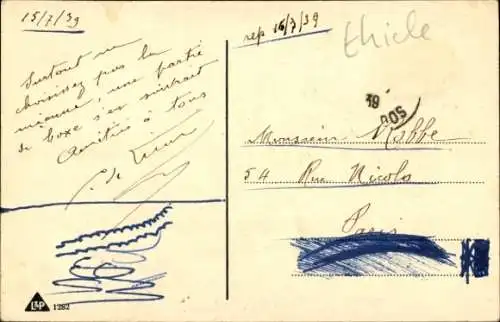 15/7/39
Surtout ne
choisissez pas la
mienne, une partie
de boxe s'en suivrait
Amitiés à tous
L&P 1282
rep 16/7/39
thicle
39
SOU
Monsieur Rabbe
54 Rue Nicolo
Paris